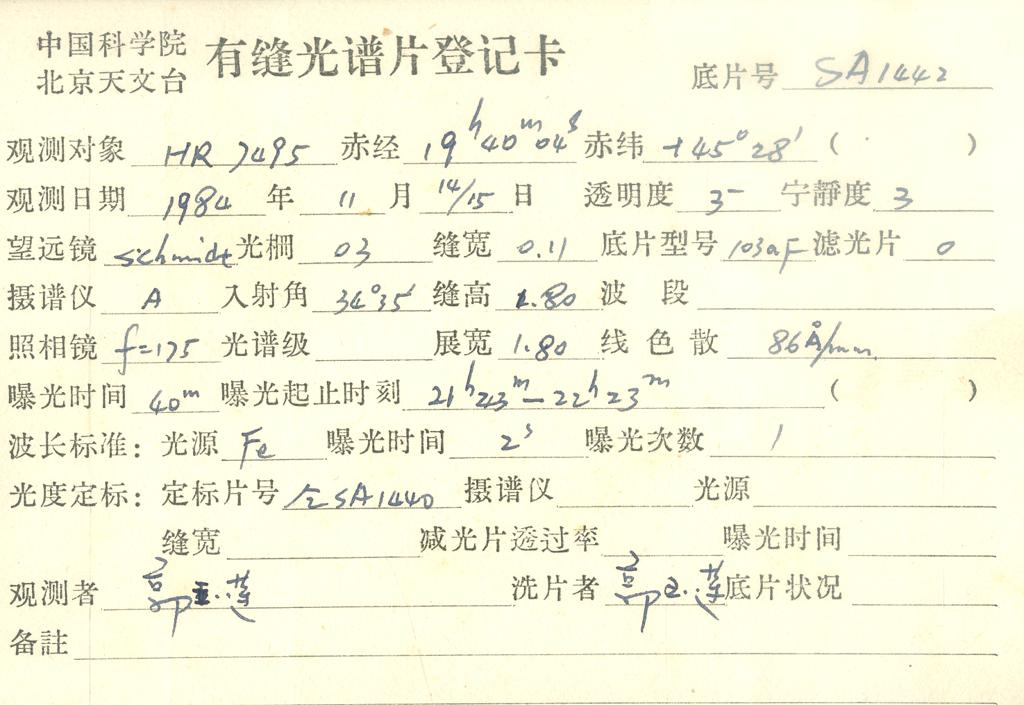 中国科学院
北京天文台
有缝光谱片登记卡
底片号 SA1442
观测对象 HR 7495 赤经 19h40m04s 赤纬 +45°28′ ( )
观测日期 1984 年 11 月 14/15 日 透明度 3- 宁静度 3
望远镜 schmidt 光栅 03 缝宽 0.11 底片型号 103aF 滤光片 0
摄谱仪 A 入射角 34°35′ 缝高 1.80 波段
照相镜 f=175 光谱级 展宽 1.80 线色散 86Å/mm
曝光时间 40m 曝光起止时刻 21h43m—22h23m ( )
波长标准: 光源 Fe 曝光时间 2s 曝光次数 1
光度定标: 定标片号 SA1440 摄谱仪 光源
缝宽 减光片透过率 曝光时间
观测者 洗片者 底片状况
备註